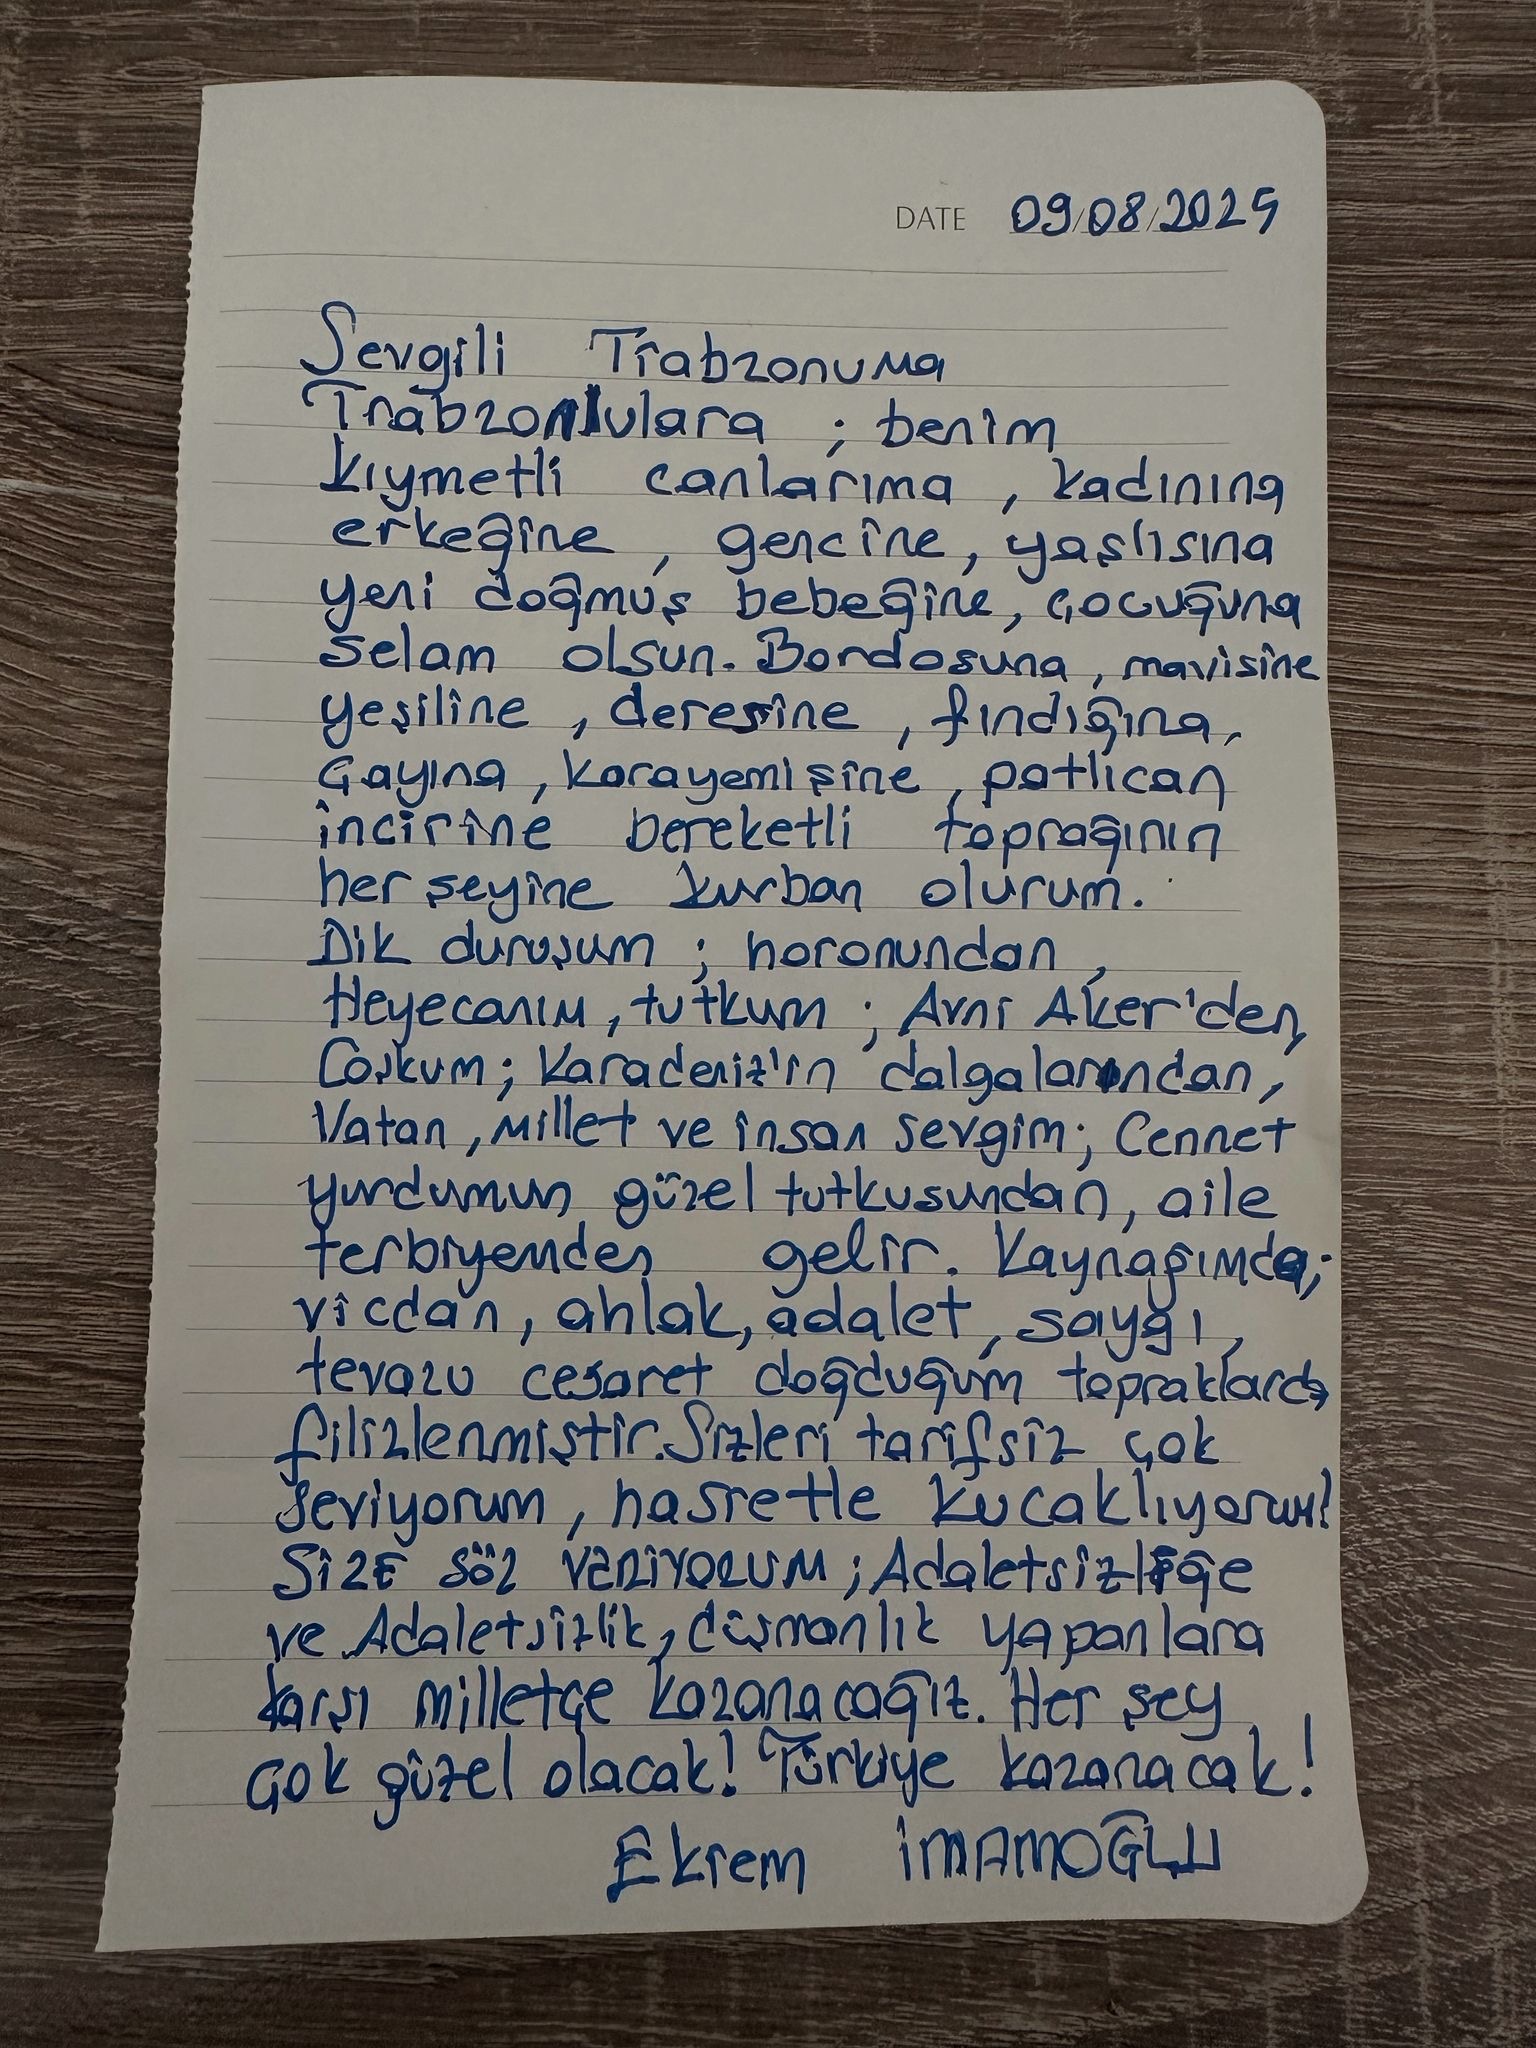 DATE 09/08/2025
Sevgili Trabzonuma
Trabzonlulara ; benim
kıymetli canlarıma , kadınına
erkeğine , gencine, yaşlısına
yeni doğmuş bebeğine, çocuğuna
selam olsun. Bordosuna , mavisine
yeşiline , deresine , fındığına,
çayına , karayemişine , patlıcan
incirine bereketli toprağının
her şeyine kurban olurum.
Dik duruşum ; horonundan ,
Heyecanım , tutkum ; Avni Aker'den,
Coşkum ; Karadeniz'in dalgalarından,
Vatan , millet ve insan sevgim ; Cennet
yurdumun güzel tutkusundan , aile
terbiyemden gelir. Kaynağımda;
vicdan , ahlak, adalet , saygı ,
tevazu cesaret doğduğum topraklarda
filizlenmiştir. Sizleri tarifsiz çok
seviyorum , hasretle kucaklıyorum!
Size söz veriyorum ; Adaletsizliğe
ve Adaletsizlik, düşmanlık yapanlara
karşı milletçe kazanacağız. Her şey
çok güzel olacak! Türkiye kazanacak!
Ekrem İMAMOĞLU